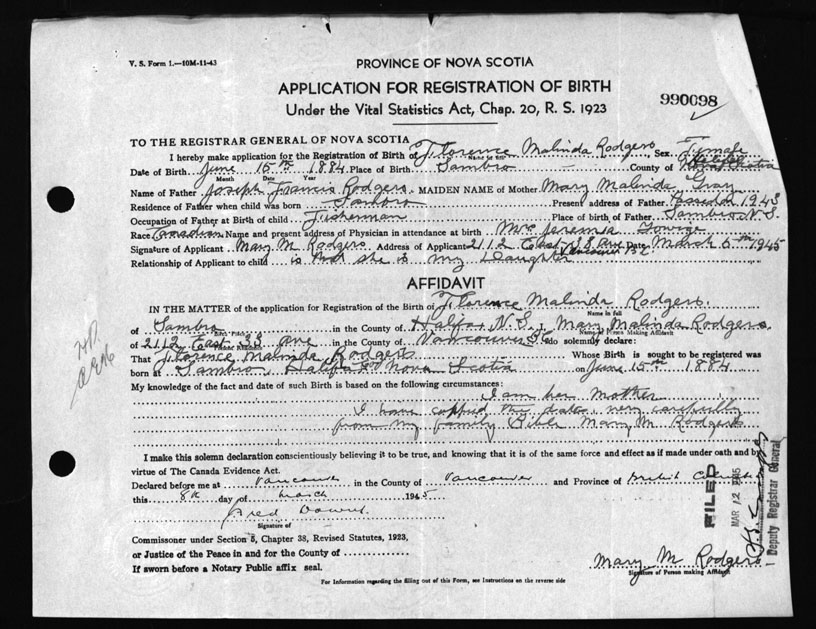 V. S. Form 1.—10M-11-43
PROVINCE OF NOVA SCOTIA
APPLICATION FOR REGISTRATION OF BIRTH
Under the Vital Statistics Act, Chap. 20, R. S. 1923
990098
TO THE REGISTRAR GENERAL OF NOVA SCOTIA
I hereby make application for the Registration of Birth of Florence Malinda Rodgers Sex Female
Date of Birth June 15th 1884 Place of Birth Sambro County of Halifax Nova Scotia
Month Date Year
Name of Father Joseph Francis Rodgers MAIDEN NAME of Mother Mary Malinda Gray
Residence of Father when child was born Sambro Present address of Father 1943
Occupation of Father at Birth of child Fisherman Place of birth of Father Sambro N.S.
Race Canadian Name and present address of Physician in attendance at birth Mrs
Signature of Applicant Mary M Rodgers Address of Applicant 2112 East 33 ave Date March 5th 1945
Vancouver B.C.
Relationship of Applicant to child is that she is my Daughter
AFFIDAVIT
IN THE MATTER of the application for Registration of the Birth of Florence Malinda Rodgers
Name in full
of Sambro in the County of Halifax N.S. I, Mary Malinda Rodgers
Name of Person Making Affidavit
of 2112 East 33 ave in the County of Vancouver do solemnly declare:
That Florence Malinda Rodgers Whose Birth is sought to be registered was
born at Sambro, Halifax Nova Scotia on June 15th 1884
My knowledge of the fact and date of such Birth is based on the following circumstances:
I am her Mother
I have coppied the date very carefully
from my family Bible Mary M Rodgers
I make this solemn declaration conscientiously believing it to be true, and knowing that it is of the same force and effect as if made under oath and by
virtue of The Canada Evidence Act.
Declared before me at Vancouver in the County of Vancouver and Province of British Columbia
this 8th day of March 1945
Signature of
Commissioner under Section 5, Chapter 38, Revised Statutes, 1923,
or Justice of the Peace in and for the County of
If sworn before a Notary Public affix seal.
Mary M Rodgers
Signature of Person making Affidavit
For Information regarding the filling out of this Form, see Instructions on the reverse side
FILED
MAR 12 1945
Deputy Registrar General